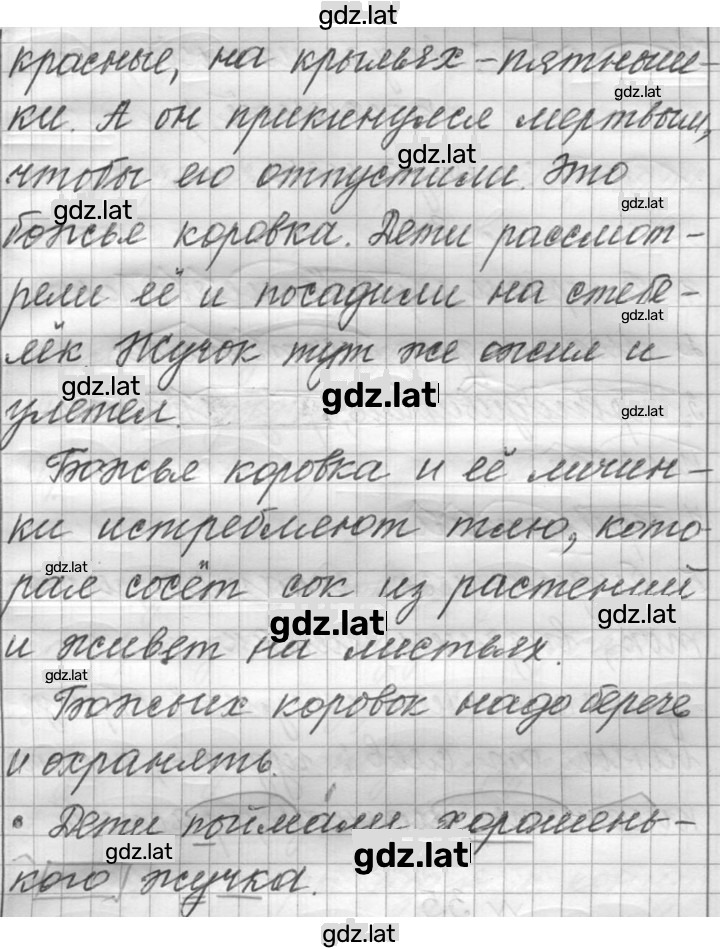 gdz.lat
красные, на крыльях - пятныш-
gdz.lat
ки. А он прикинулся мертвым,
gdz.lat
чтобы его отпустили. Это
gdz.lat
gdz.lat
божья коровка. Дети рассмот-
рели её и посадили на стебе-
gdz.lat
лёк. Жучок тут же ожил и
gdz.lat
gdz.lat
gdz.lat
улетел.
Божья коровка и её личин-
ки истребляют тлю, кото-
gdz.lat
рая сосёт сок из растений
gdz.lat
gdz.lat
и живет на листьях.
gdz.lat
Божьих коровок надо береч
и охранять.
• Дети поймали хорошень-
gdz.lat
gdz.lat
кого жучка.
gdz.lat